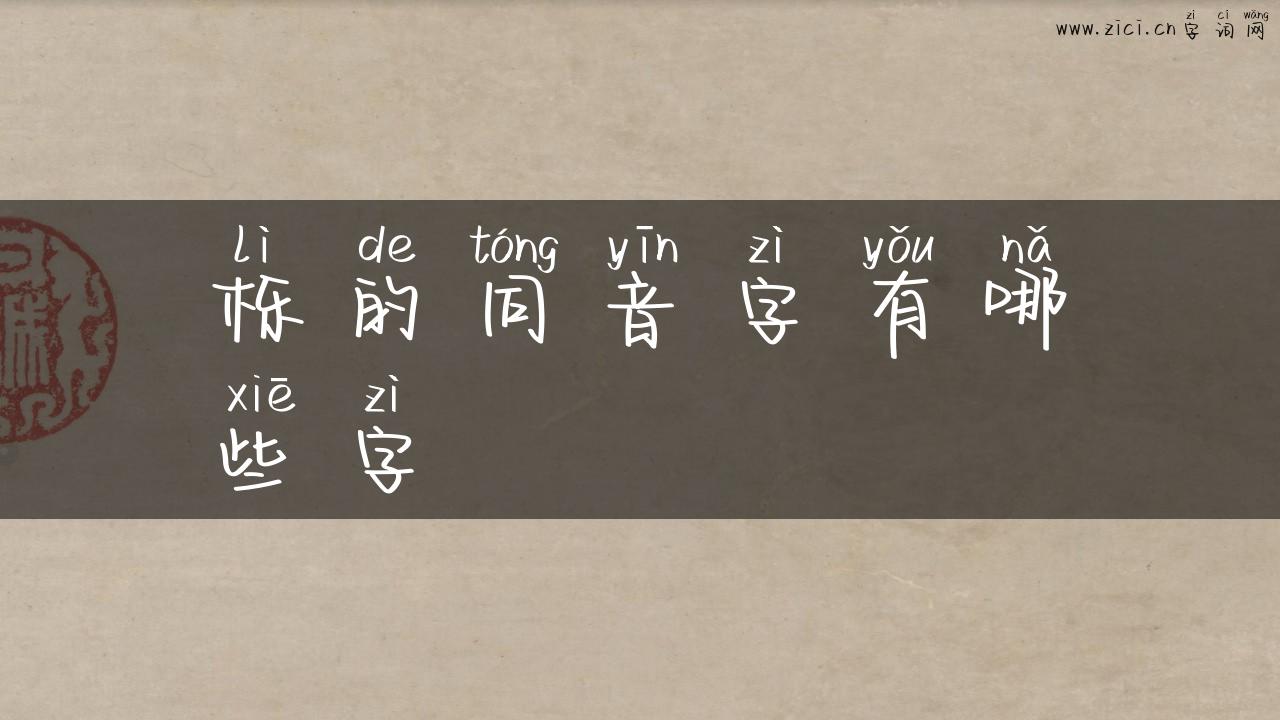 www.zici.cn
zì cí wǎng
字词网
lì de tóng yīn zì yǒu nǎ
栎的同音字有哪
xiē zì
些字